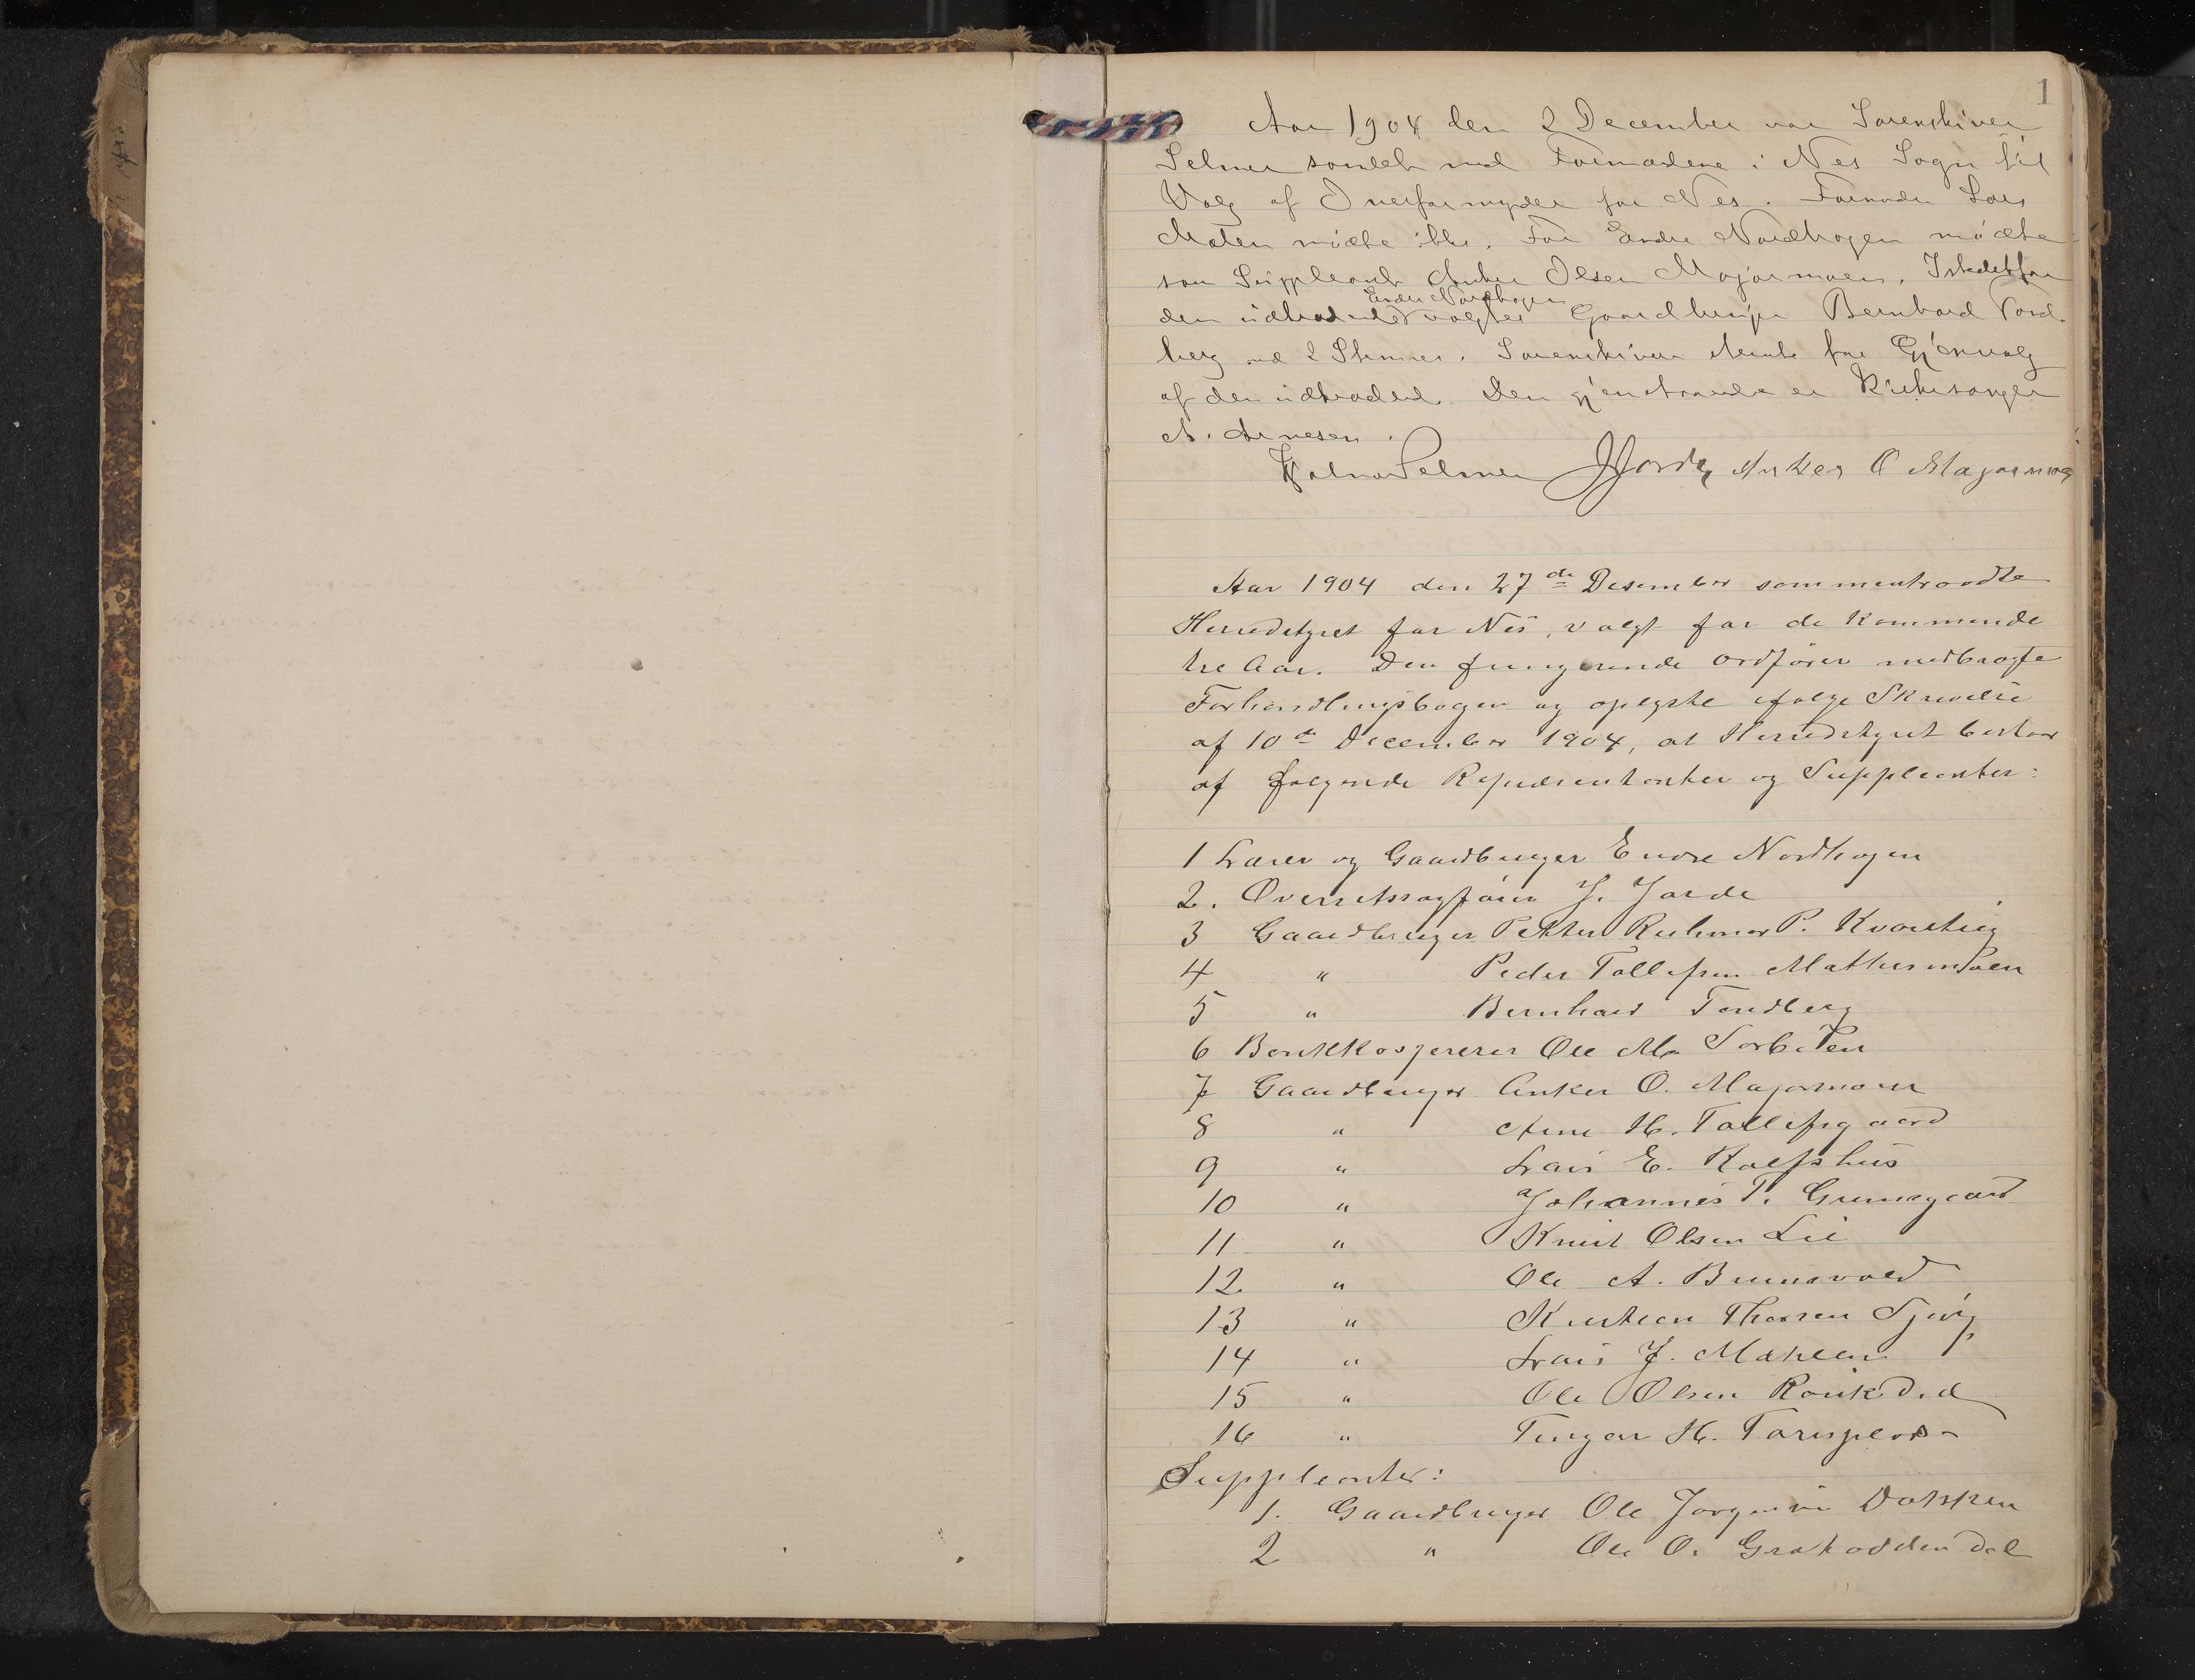 1
Aar 1904 den 2 December var Sorenskriver
Selmer samlet med Formændene i Nes Sogn til
Valg af Overformynder for Nes. Formand Lars
Mølen mødte ikke. For Endre Nordhagen mødte
som Suppleant Anker Olsen Majormoen. Istedetfor
Endre Nordhagen
den udtrædende valgtes Gaardbruger Bernhard Tord
berg med 2 Stemmer. Sorenskriveren stemte for Gjenvalg
af den udtrædende. Den gjenstaaende er Kirkesanger
A. Arnesen.
Selmer J Jorde Anker O Majormoen
Aar 1904 den 27de Desember sammentraadte
Herredstyret for Nes, valgt for de kommende
tre Aar. Den fungerende Ordfører medbragte
Forhandlingsbogen og oplyste ifølge Skrivelse
af 10de December 1904, at Herredstyret bestaar
af følgende Repræsentanter og Suppleanter:
1 Lærer og Gaardbruger Endre Nordhagen
2. Overretssagfører J. Jorde
3 Gaardbruger Petter P.
4 " Peder Tollefsen
5 " Bernhard Tordberg
6 Bankkasserer Ole M.
7 Gaardbruger Anker O. Majormoen
8 " Arne H. Tollefsgaard
9 " Lars E. Rolfshus
10 " Johannes T. Grimsgaard
11 " Knut Olsen Lie
12 " Ole A. Brunsvold
13 " Kristian Thorsen
14 " Lars J. Mæhlen
15 " Ole Olsen
16 " H.
Suppleanter:
1. Gaardbruger Ole Jørgensen Dokken
2 " Ole O.